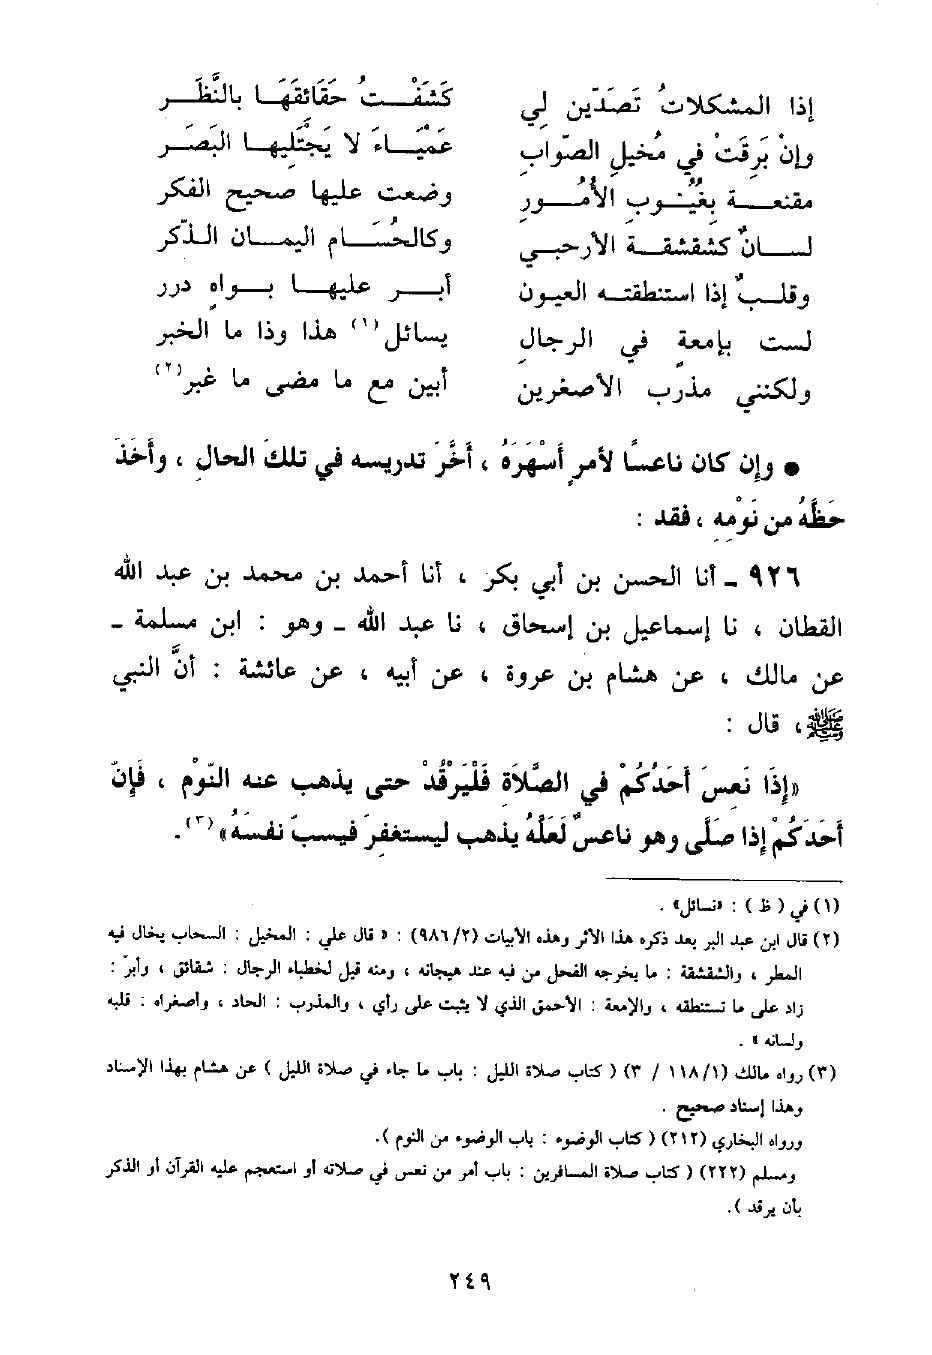 إذا المشكلاتُ تَصَدَّين لي كَشَفْتُ حَقَائقَهَا بالنَّظَر
وإنْ بَرِقَتْ في مُخيلِ الصّوابِ عَمْيَاءَ لا يَجْتَليها البَصَر
مقنعة بغُيُوبِ الأُمُورِ وضعت عليها صحيح الفكر
لسانٌ كشقشقة الأرحبي وكالحُسَام اليمان الذّكر
وقلبٌ إذا استنطقته العيون أبر عليها بواهٍ درر
لست بإمعةٍ في الرجالِ يسائل(١) هذا وذا ما الخبر
ولكنني مذرب الأصغرين أبين مع ما مضى ما غبر(٢)
● وإن كان ناعسًا لأمرٍ أَسْهَرَهُ ، أَخَّرَ تدريسه في تلك الحال ، وأَخَذَ
حَظَّهُ من نَوْمِهِ ، فقد :
٩٢٦ ـ أنا الحسن بن أبي بكر ، أنا أحمد بن محمد بن عبد الله
القطان ، نا إسماعيل بن إسحاق ، نا عبد الله ـ وهو : ابن مسلمة ـ
عن مالك ، عن هشام بن عروة ، عن أبيه ، عن عائشة : أنَّ النبي
ﷺ ، قال :
«إِذَا نَعِسَ أَحَدُكُمْ في الصَّلاَة فَلْيَرْقُدْ حتى يذهب عنه النّوْم ، فَإِنّ
أَحَدَكُمْ إِذا صَلَّى وهو ناعسٌ لَعَلَّهُ يذهب ليستغفرَ فيسبّ نفسَهُ»(٣).
(١) في ( ظ ) : «نسائل» .
(٢) قال ابن عبد البر بعد ذكره هذا الأثر وهذه الأبيات (٩٨٦/٢) : « قال علي : المخيل : السحاب يخال فيه
المطر ، والشقشقة : ما يخرجه الفحل من فيه عند هيجانه ، ومنه قيل لخطباء الرجال : شقائق ، وأبرّ :
زاد على ما تستنطقه ، والإمعة : الأحمق الذي لا يثبت على رأي ، والمذرب : الحاد ، وأصغراه : قلبه
ولسانه » .
(٣) رواه مالك (١١٨/١ / ٣) ( كتاب صلاة الليل : باب ما جاء في صلاة الليل ) عن هشام بهذا الإسناد
وهذا إسناد صحيح .
ورواه البخاري (٢١٢) ( كتاب الوضوء : باب الوضوء من النوم ).
ومسلم (٢٢٢) ( كتاب صلاة المسافرين : باب أمر من نعس في صلاته أو استعجم عليه القرآن أو الذكر
بأن يرقد ).
٢٤٩